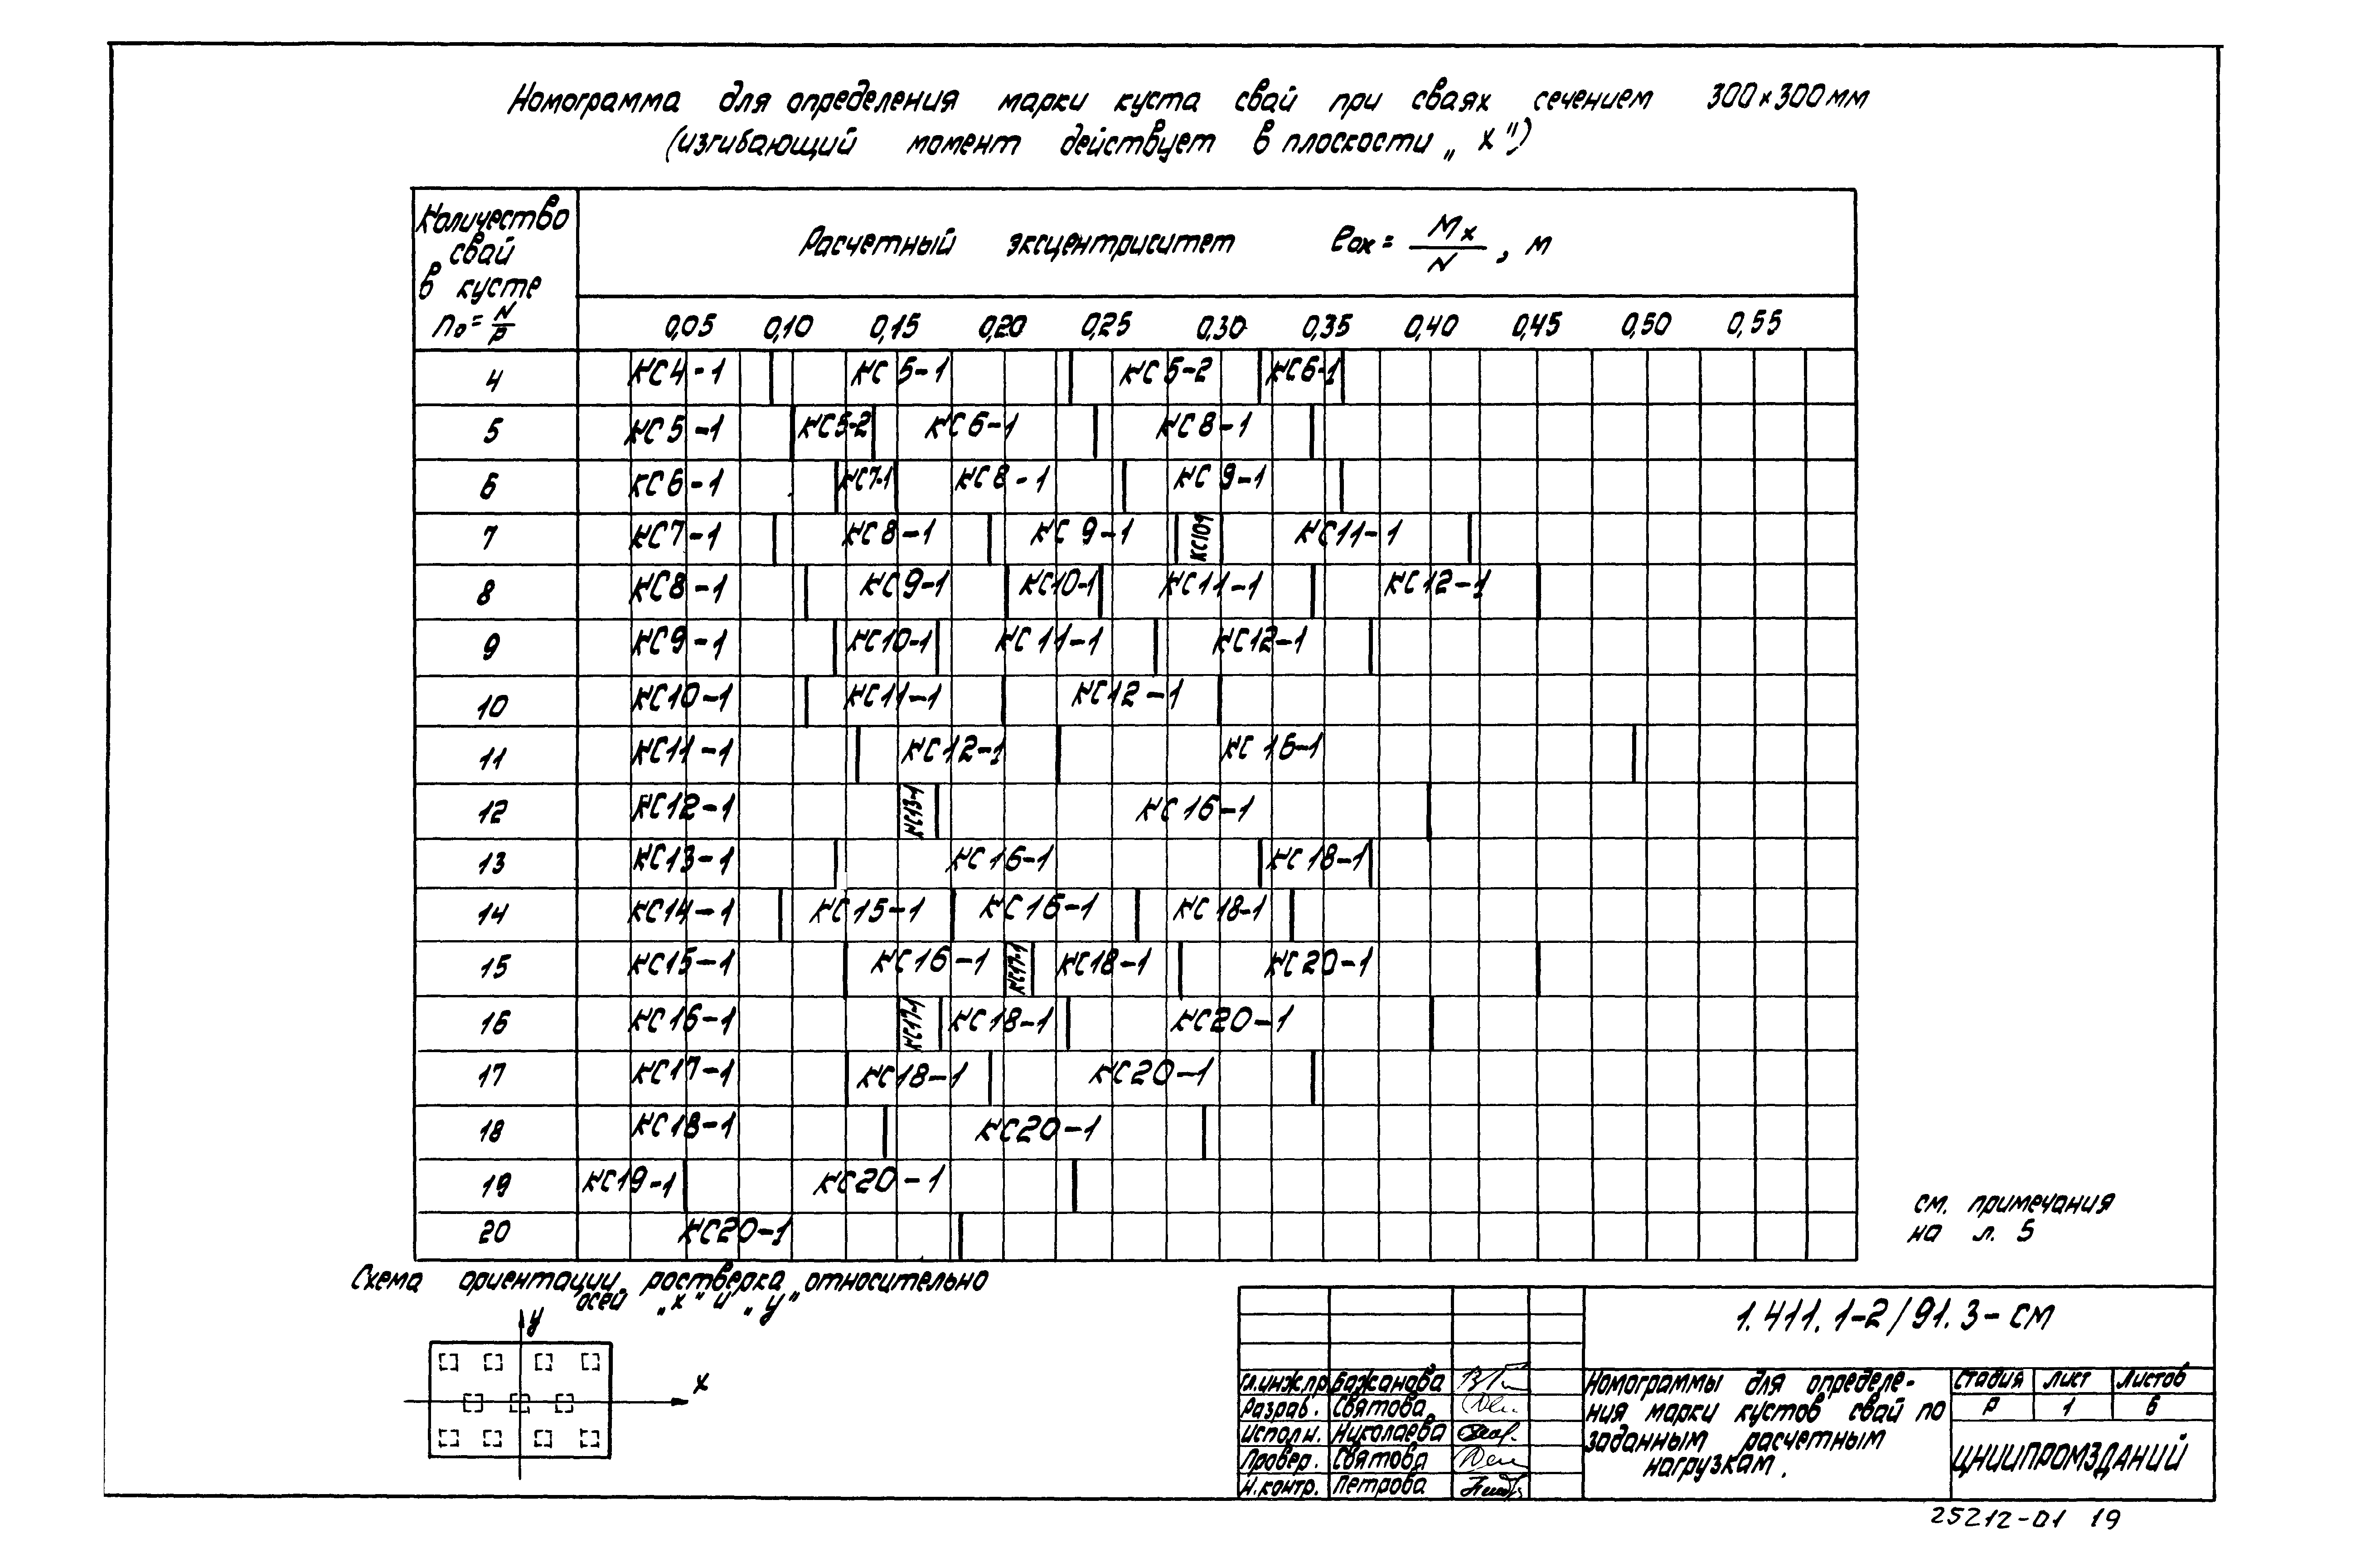 Номограмма для определения марки куста свай при сваях сечением 300×300мм
(изгибающий момент действует в плоскости „x")
Количество
свай
в кусте
n₀ = N/P
Расчетный эксцентриситет eох = Mx/N, м
0,05 0,10 0,15 0,20 0,25 0,30 0,35 0,40 0,45 0,50 0,55
4 КС4-1 КС5-1 КС5-2 КС6-1
5 КС5-1 КС5-2 КС6-1 КС8-1
6 КС6-1 КС7-1 КС8-1 КС9-1
7 КС7-1 КС8-1 КС9-1 КС11-1
8 КС8-1 КС9-1 КС10-1 КС11-1 КС12-1
9 КС9-1 КС10-1 КС11-1 КС12-1
10 КС10-1 КС11-1 КС12-1
11 КС11-1 КС12-1 КС16-1
12 КС12-1 КС13-1 КС16-1
13 КС13-1 КС16-1 КС18-1
14 КС14-1 КС15-1 КС16-1 КС18-1
15 КС15-1 КС16-1 КС17-1 КС18-1 КС20-1
16 КС16-1 КС17-1 КС18-1 КС20-1
17 КС17-1 КС18-1 КС20-1
18 КС18-1 КС20-1
19 КС19-1 КС20-1
20 КС20-1
см. примечания
на л. 5
Схема ориентации ростверка относительно
осей „x" и „y"
y
x
1.411.1-2/91.3-СМ
Гл.инж.пр. Бажанова
Разраб. Святова
Исполн. Николаева
Провер. Святова
Н.контр. Петрова
Номограммы для определе-
ния марки кустов свай по
заданным расчетным
нагрузкам.
Стадия Лист Листов
Р 1 6
ЦНИИПРОМЗДАНИЙ
25212-01 19